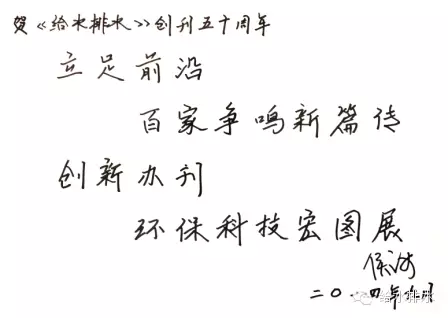 贺《给水排水》创刊五十周年
立足前沿
百家争鸣新篇传
创新办刊
环保科技宏图展
二〇一四年八月
给水排水